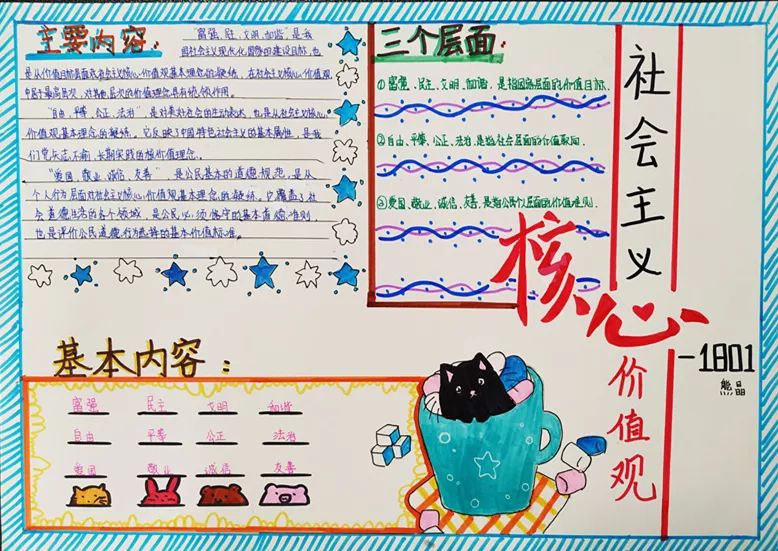 主要内容：
“富强、民主、文明、和谐”，是我
国社会主义现代化国家的建设目标，也
是从价值目标层面对社会主义核心价值观基本理念的凝练，在社会主义核心价值观
中居于最高层次，对其他层次的价值理念具有统领作用。
“自由、平等、公正、法治”，是对美好社会的生动表述，也是从社会主义核心
价值观基本理念的凝练。它反映了中国特色社会主义的基本属性，是我
们党矢志不渝、长期实践的核价值理念。
“爱国、敬业、诚信、友善”，是公民基本的道德规范，是从
个人行为层面对社会主义核心价值观基本理念的凝练。它覆盖了社
会道德生活的各个领域，是公民必须恪守的基本道德准则
也是评价公民道德行为选择的基本价值标准。
三个层面：
①富强、民主、文明、和谐，是指国家层面的价值目标
②自由、平等、公正、法治，是指社会层面的价值取向
③爱国、敬业、诚信、友善，是指公民个人层面的价值准则
社会主义
核心
价值观
-1801
熊晶
基本内容：
富强 民主 文明 和谐
自由 平等 公正 法治
爱国 敬业 诚信 友善